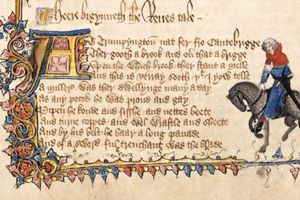 Heere bigynneth the Reues tale
At Trumpyngton nat fer fro Cantebrigge
Ther gooth a brook and ouer that a brigge
Vp on the which brook ther stant a melle
And this is verray sooth þt I yow telle
A millere was ther dwellynge many a day
As any pecok he was proud and gay
Pipen he koude and fisshe and nettes beete
And turne coppes and wel wrastle and sheete
And by his belt he baar a long panade
And of a swerd ful trenchant was the blade